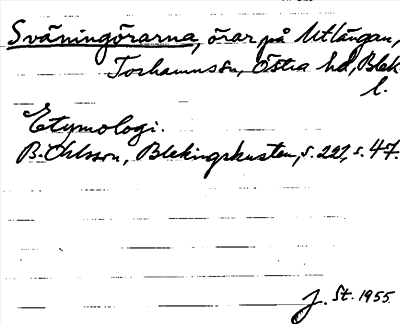 Sväningörarna, örar på Utlängan,
Torhamns sn, Östra hd, Blek
l.
Etymologi.
B. Ohlsson, Blekingskusten, s. 221, s. 47.
J. St. 1955.